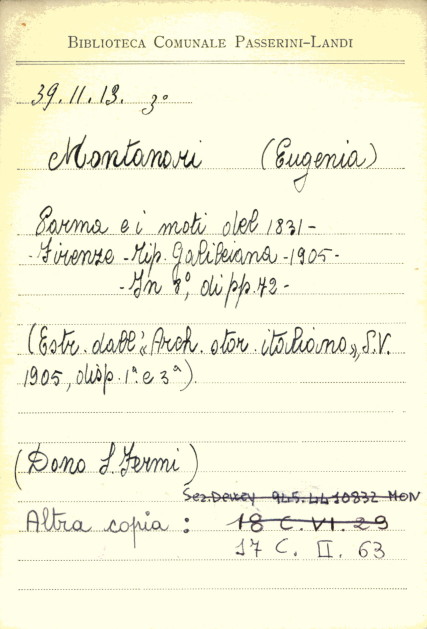 BIBLIOTECA COMUNALE PASSERINI-LANDI
39.11.13. 3°
Montanari (Eugenia)
Parma e i moti del 1831-
-Firenze-Tip. Galileiana-1905-
-In 8°, di pp. 42-
(Estr. dall'«Arch. stor. italiano», S.V.
1905, disp. 1ª e 3ª).
(Dono S. Fermi)
Sez. Dewey 945.4410832 MON
Altra copia : 18 C. VI. 29
17 C. II. 63